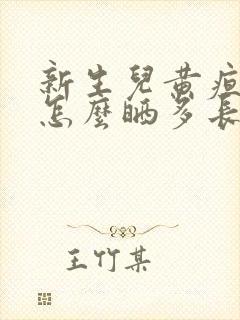 新生兒黃疸
怎麼晒多長
王竹某